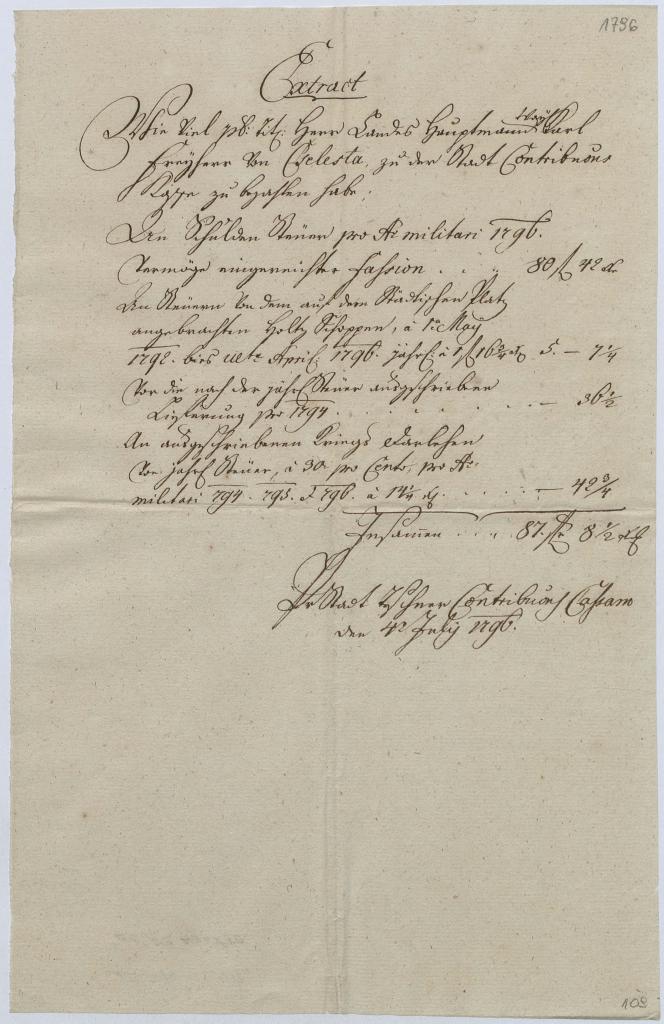 1796
Extract
Wie viel pl: tit: Herr Landes Hauptmann Karl
Freyherr von Celesta, zu der Stadt Contribuons
Kasse zu bezahlen habe:
An Schulden Steuer pro Ao militari 1796.
Vermöge eingereichter Fassion . . . 80 f 42 xr
An Steuern von dem auf dem Städtischen Platz
angebrachten Holtz Schoppen, à 1ma May
1792. bies ulta April: 1796. jährl: à 1 f 16 3/4 xr 5. — 7 1/4
Vor die nach der jährl Steuer ausgeschriebene
Lieferung pro 1794 . . . . . . — 36 1/2
An ausgeschriebenen Kriegs Darlehen
von jährl Steuer, à 30 pro Cento, pro Ao
militari 794. 795. & 796. à 14 1/4 xr. . . . . — 42 3/4
Zusammen . . . 87. f 8 1/2 xr
Pr Stadt Contribuons Cassam
den 4t July 1796.
109